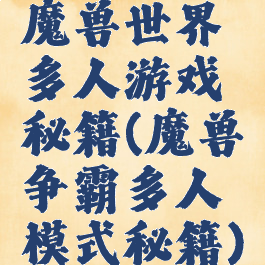 魔兽世界
多人游戏
秘籍(魔兽
争霸多人
模式秘籍)